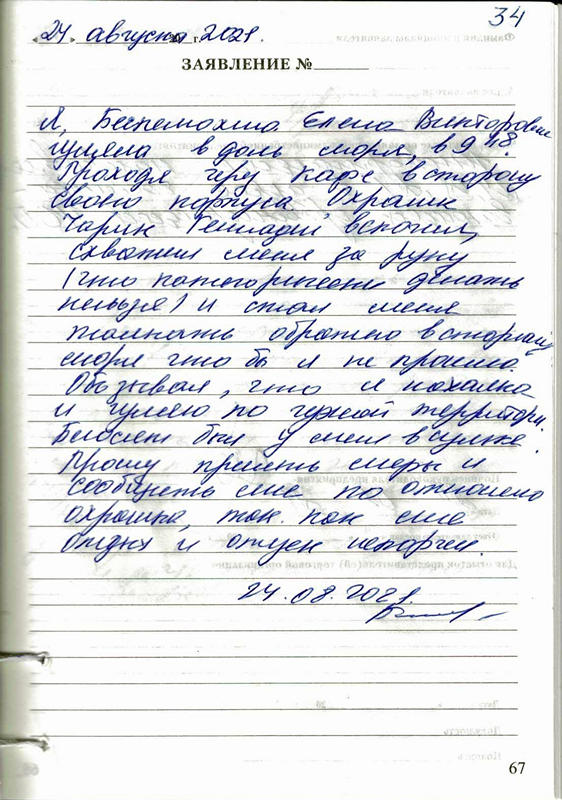 34
24 августа 2021.
« » 20 г.
ЗАЯВЛЕНИЕ №
Я, Елена Викторовна
гуляла в день моря, в 9 48.
Проходя через кафе в сторону
своего корпуса. Охранник
Чарик Геннадий вспылил,
схватил меня за руку
(что категорически делать
нельзя) и стал меня
толкать обратно в сторону
моря что бы я не прошла.
Обзывал, что я нахалка
и гуляю по чужой территори.
был у меня в сумке.
Прошу принять меры и
сообщить мне по
охранника, так как мне
отдых и отпуск испорчен.
24.08.2021.
67